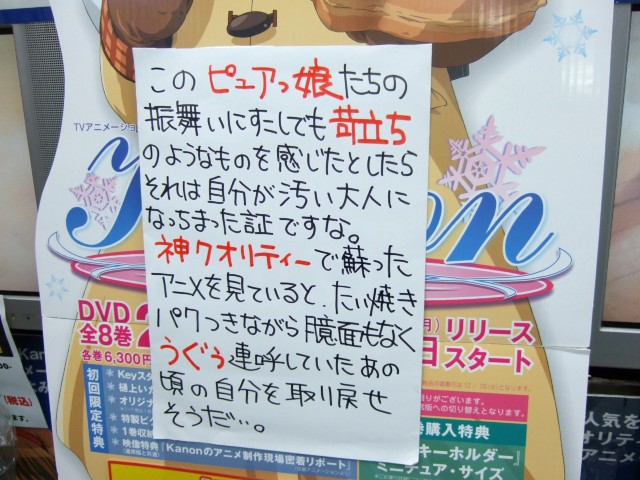 この ピュアっ娘たちの
振舞いにすこしでも 苛立ち
のようなものを感じたとしたら
それは自分が汚い大人に
なっちまった証ですな。
神クオリティーで蘇った
アニメを見ていると、たい焼き
パクつきながら臆面もなく
うぐぅ 連呼していたあの
頃の自分を取り戻せ
そうだ…。
TVアニメーショ
non
DVD
全8巻 2
各巻6,300円
月）リリース
日スタート
初回限定特典
＊Keyスタ
＊樋上いた
＊オリジナ
＊特製ピ
＊1巻収納
＊映像特典「Kanonのアニメ制作現場密着リポート」
巻購入特典
キーホルダー
ミニチュア・サイズ
(税込)
Kanon
人気を
オリティ
KANO